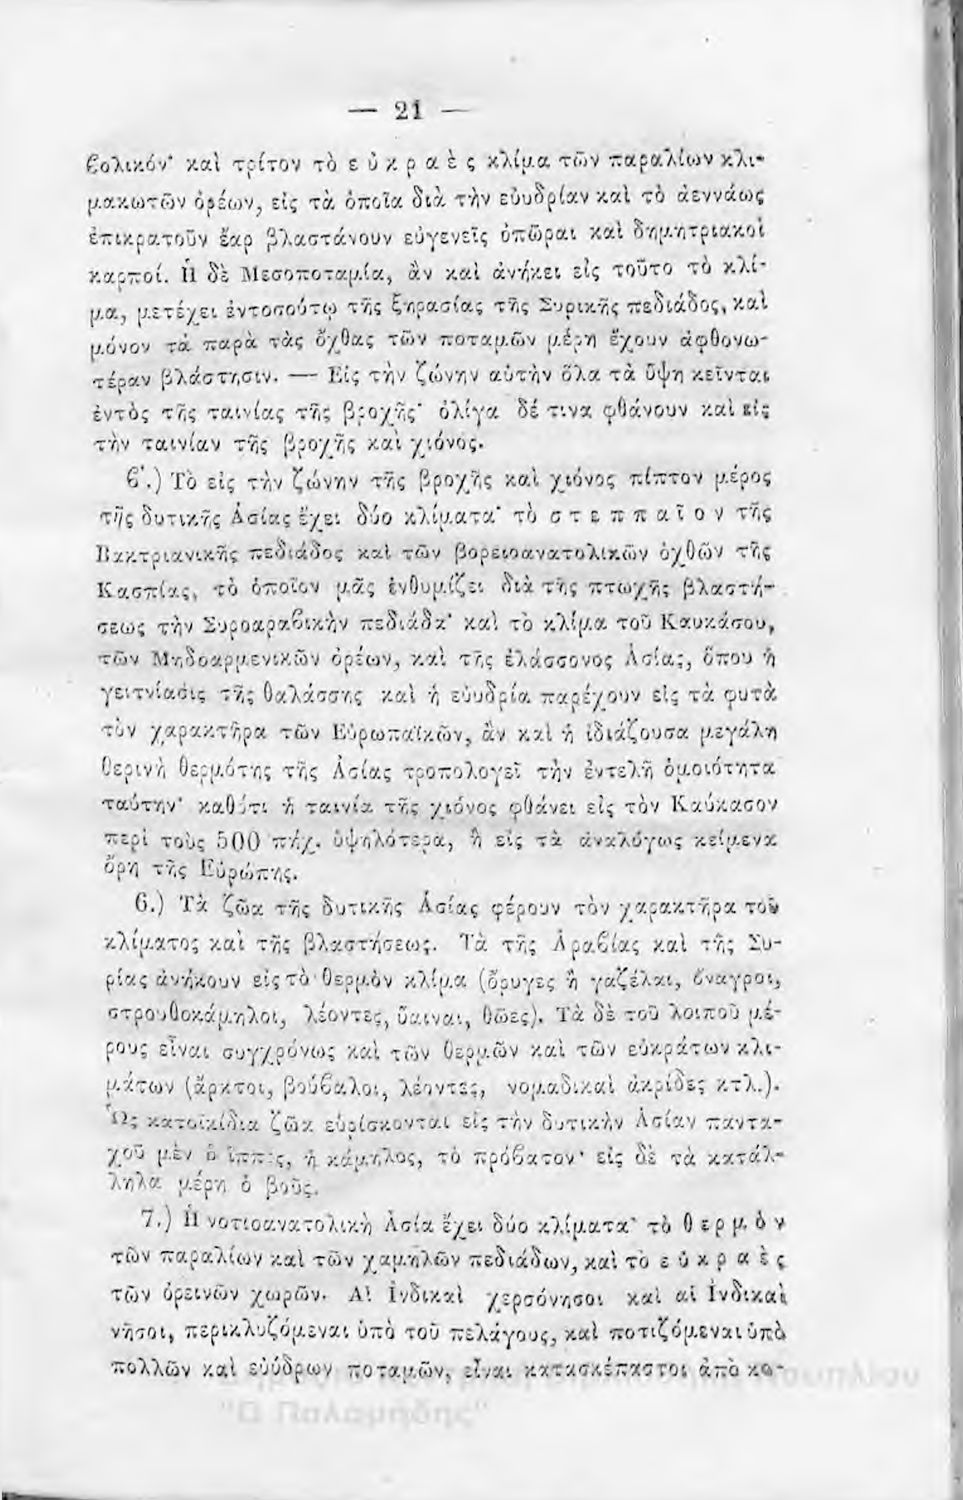 — 21 —
βολικόν· καὶ τρίτον τὸ εὐκραὲς κλίμα τῶν παραλίων κλι-
μακωτῶν ὀρέων, εἰς τὰ ὁποῖα διὰ τὴν εὐυδρίαν καὶ τὸ ἀεννάως
ἐπικρατοῦν ἔαρ βλαστάνουν εὐγενεῖς ὀπῶραι καὶ δημητριακοὶ
καρποί. Ἡ δὲ Μεσοποταμία, ἂν καὶ ἀνήκει εἰς τοῦτο τὸ κλί-
μα, μετέχει ἐντοσούτῳ τῆς ξηρασίας τῆς Συρικῆς πεδιάδος, καὶ
μόνον τὰ παρὰ τὰς ὄχθας τῶν ποταμῶν μέρη ἔχουν ἀφθονω-
τέραν βλάστησιν. — Εἰς τὴν ζώνην αὐτὴν ὅλα τὰ ὕψη κεῖνται
ἐντὸς τῆς ταινίας τῆς βροχῆς· ὀλίγα δέ τινα φθάνουν καὶ εἰς
τὴν ταινίαν τῆς βροχῆς καὶ χιόνος.
β'.) Τὸ εἰς τὴν ζώνην τῆς βροχῆς καὶ χιόνος πίπτον μέρος
τῆς δυτικῆς Ἀσίας ἔχει δύο κλίματα· τὸ στεππαῖον τῆς
Βακτριανικῆς πεδιάδος καὶ τῶν βορειοανατολικῶν ὀχθῶν τῆς
Κασπίας, τὸ ὁποῖον μᾶς ἐνθυμίζει διὰ τῆς πτωχῆς βλαστή-
σεως τὴν Συροαραβικὴν πεδιάδα· καὶ τὸ κλίμα τοῦ Καυκάσου,
τῶν Μηδοαρμενικῶν ὀρέων, καὶ τῆς ἐλάσσονος Ἀσίας, ὅπου ἡ
γειτνίασις τῆς θαλάσσης καὶ ἡ εὐυδρία παρέχουν εἰς τὰ φυτὰ
τὸν χαρακτῆρα τῶν Εὐρωπαϊκῶν, ἂν καὶ ἡ ἰδιάζουσα μεγάλη
θερινὴ θερμότης τῆς Ἀσίας τροπολογεῖ τὴν ἐντελῆ ὁμοιότητα
ταύτην· καθότι ἡ ταινία τῆς χιόνος φθάνει εἰς τὸν Καύκασον
περὶ τοὺς 500 πήχ. ὑψηλότερα, ἢ εἰς τὰ ἀναλόγως κείμενα
ὄρη τῆς Εὐρώπης.
6.) Τὰ ζῶα τῆς δυτικῆς Ἀσίας φέρουν τὸν χαρακτῆρα τοῦ
κλίματος καὶ τῆς βλαστήσεως. Τὰ τῆς Ἀραβίας καὶ τῆς Συ-
ρίας ἀνήκουν εἰς τὸ θερμὸν κλίμα (ὄρυγες ἢ γαζέλαι, ὄναγροι,
στρουθοκάμηλοι, λέοντες, ὕαιναι, θῶες). Τὰ δὲ τοῦ λοιποῦ μέ-
ρους εἶναι συγχρόνως καὶ τῶν θερμῶν καὶ τῶν εὐκράτων κλι-
μάτων (ἄρκτοι, βούβαλοι, λέοντες, νομαδικαὶ ἀκρίδες κτλ.).
Ὡς κατοικίδια ζῶα εὑρίσκονται εἰς τὴν δυτικὴν Ἀσίαν παντα-
χοῦ μὲν ὁ ἵππος, ἡ κάμηλος, τὸ πρόβατον· εἰς δὲ τὰ κατάλ-
ληλα μέρη ὁ βοῦς.
7.) Ἡ νοτιοανατολικὴ Ἀσία ἔχει δύο κλίματα· τὸ θερμὸν
τῶν παραλίων καὶ τῶν χαμηλῶν πεδιάδων, καὶ τὸ εὐκραὲς
τῶν ὀρεινῶν χωρῶν. Αἱ Ἰνδικαὶ χερσόνησοι καὶ αἱ Ἰνδικαὶ
νῆσοι, περικλυζόμεναι ὑπὸ τοῦ πελάγους, καὶ ποτιζόμεναι ὑπὸ
πολλῶν καὶ εὐύδρων ποταμῶν, εἶναι κατασκέπαστοι ἀπὸ κο-
Ναυπλίου
"Ο Παλαμήδης"